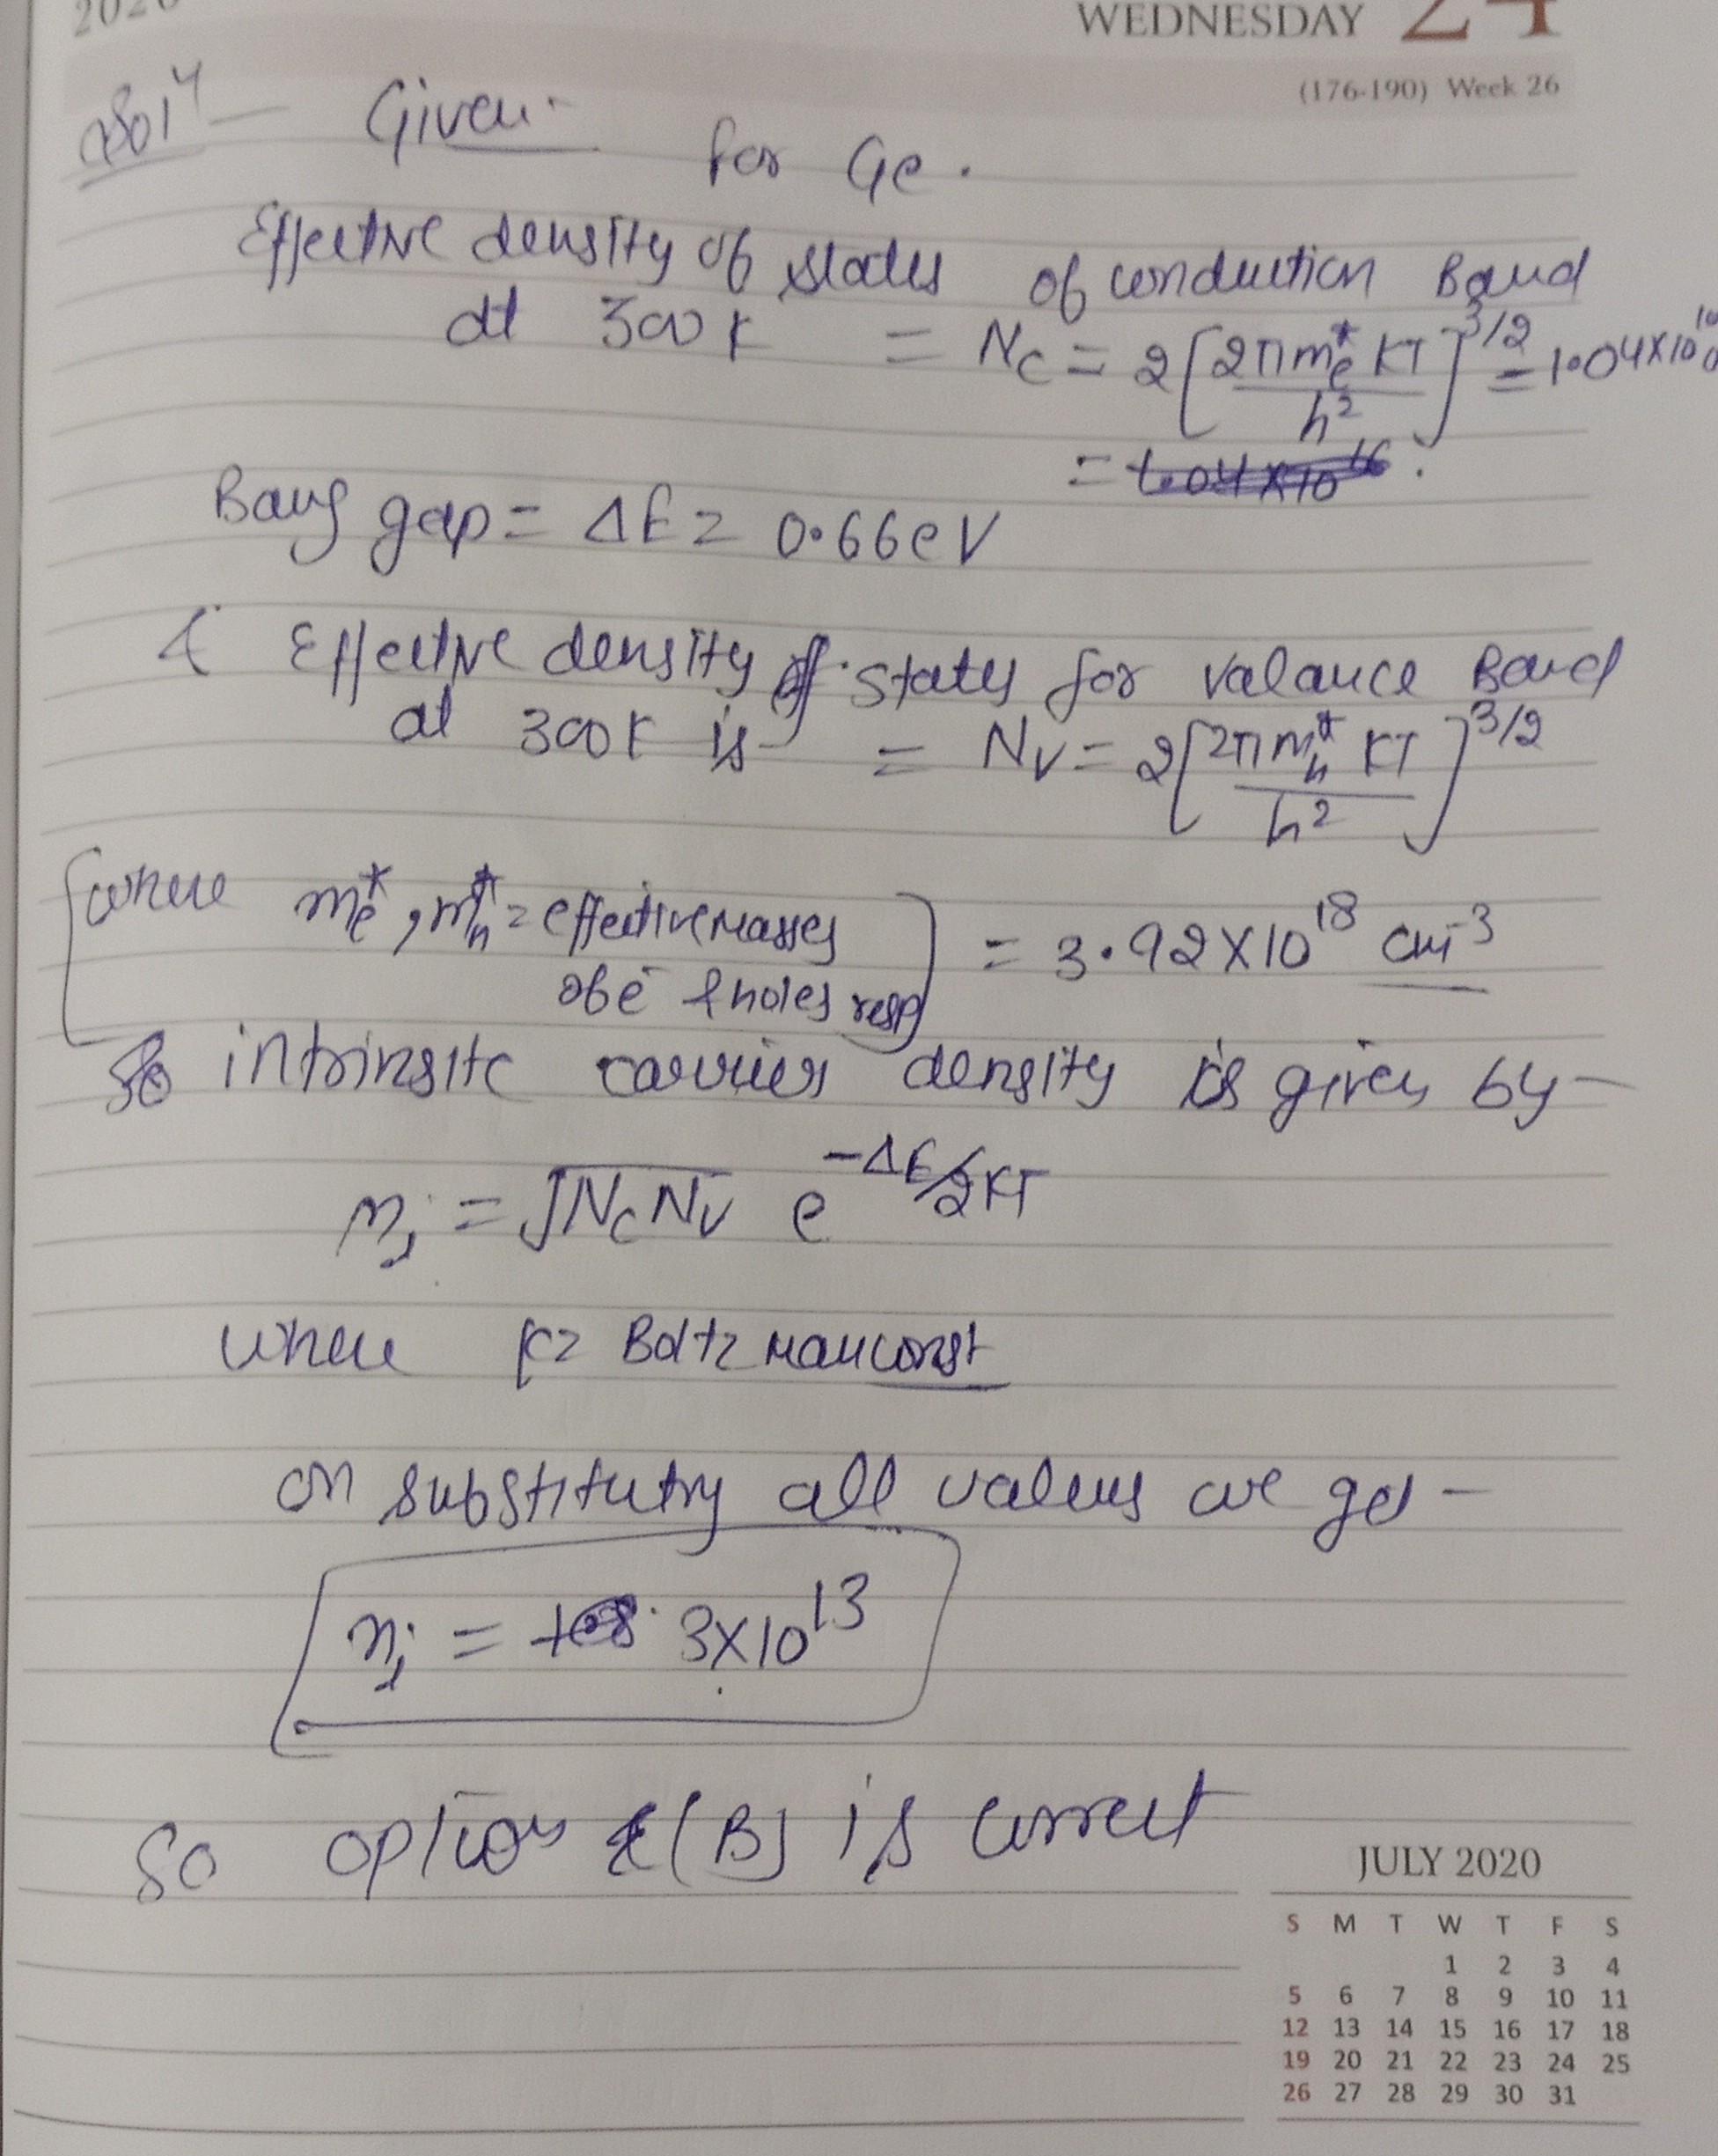 WEDNESDAY 24
(176-190) Week 26
Solⁿ — Given:-
for Ge.
Effective density of states of conduction Band
at 300 K = N_C = 2[2πm*_e KT / h²]^3/2 = 1.04×10
=
Band gap = ΔE = 0.66eV
& Effective density of states for valance Band
at 300K is = N_V = 2[2πm*_h KT / h²]^3/2
[where m*_e, m*_h = effective masses
of e⁻ & holes resp] = 3.92×10^18 cm^-3
So intrinsitc carrier density is given by —
n_i = √N_C N_V e^-ΔE/2KT
where K= Boltzmann const
on substituting all values we get —
n_i = 3×10^13
So option (B) is correct
JULY 2020
S M T W T F S
1 2 3 4
5 6 7 8 9 10 11
12 13 14 15 16 17 18
19 20 21 22 23 24 25
26 27 28 29 30 31